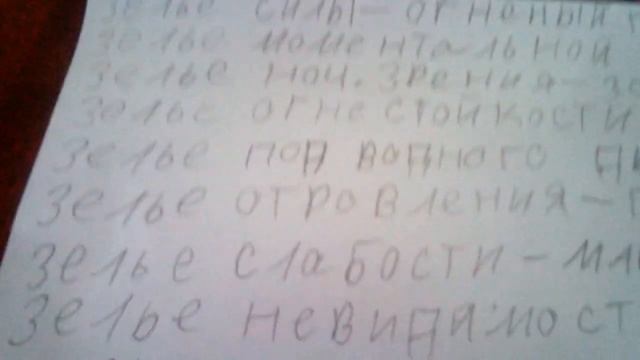 зелье силы - огненый
зелье моментальной
зелье ноч. зрения - зо
зелье огнестойкости
зелье под водного ды
зелье отровления -
зелье слабости - мл
зелье невидимост